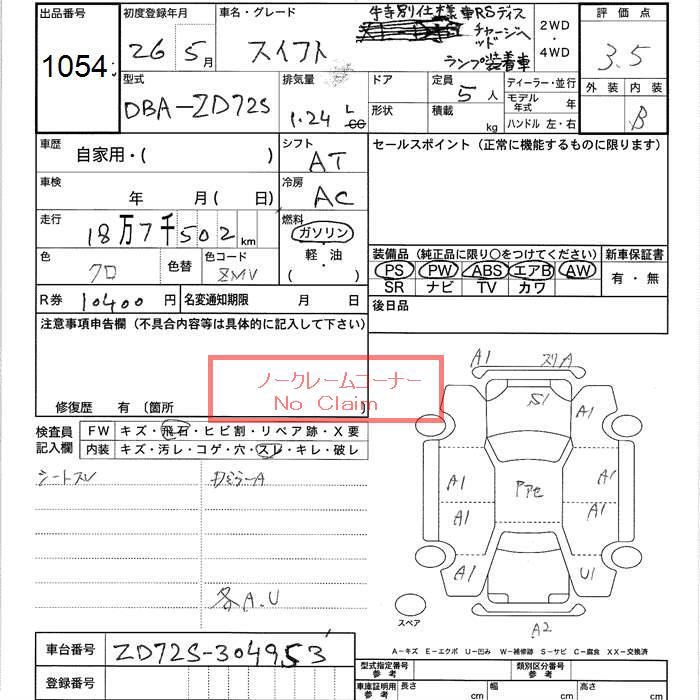 出品番号 初度登録年月 車名・グレード 評価点
1054 26年5月 スイフト 特別仕様車RSディスチャージヘッドランプ装着車 2WD・4WD 3.5
型式 排気量 ドア 定員 ディーラー・並行 外装 内装
DBA-ZD72S 1.24 L 5人 モデル年式 年 B
形状 積載 kg ハンドル 左・右
車歴 自家用・( ) シフト AT セールスポイント(正常に機能するものに限ります)
車検 年 月( 日) 冷房 AC
走行 18万7千502km 燃料 ガソリン
軽・油
( )
色 クロ 色替 色コード ZMV
装備品(純正品に限り○をつけてください) 新車保証書
PS PW ABS エアB AW 有・無
SR ナビ TV カワ
R券 10400円 名変通知期限 月 日 後日品
注意事項申告欄(不具合内容等は具体的に記入して下さい)
ノークレームコーナー
No Claim
修復歴 有(箇所 )
検査員記入欄 FW キズ・飛石・ヒビ割・リペア跡・X要
内装 キズ・汚レ・コゲ・穴・スレ・キレ・破レ
シートスレ ミラーA
各A.U
A1 スリA
S1 A1
A1 Pアセ A1
A1 A1
A1 U1
スペア A2
A-キズ E-エクボ U-凹み W-補修跡 S-サビ C-腐食 XX-交換済
車台番号 ZD72S-304953
登録番号
型式指定番号 参考 類別区分番号 参考
車庫証明用 参考 長さ cm 幅 cm 高さ cm